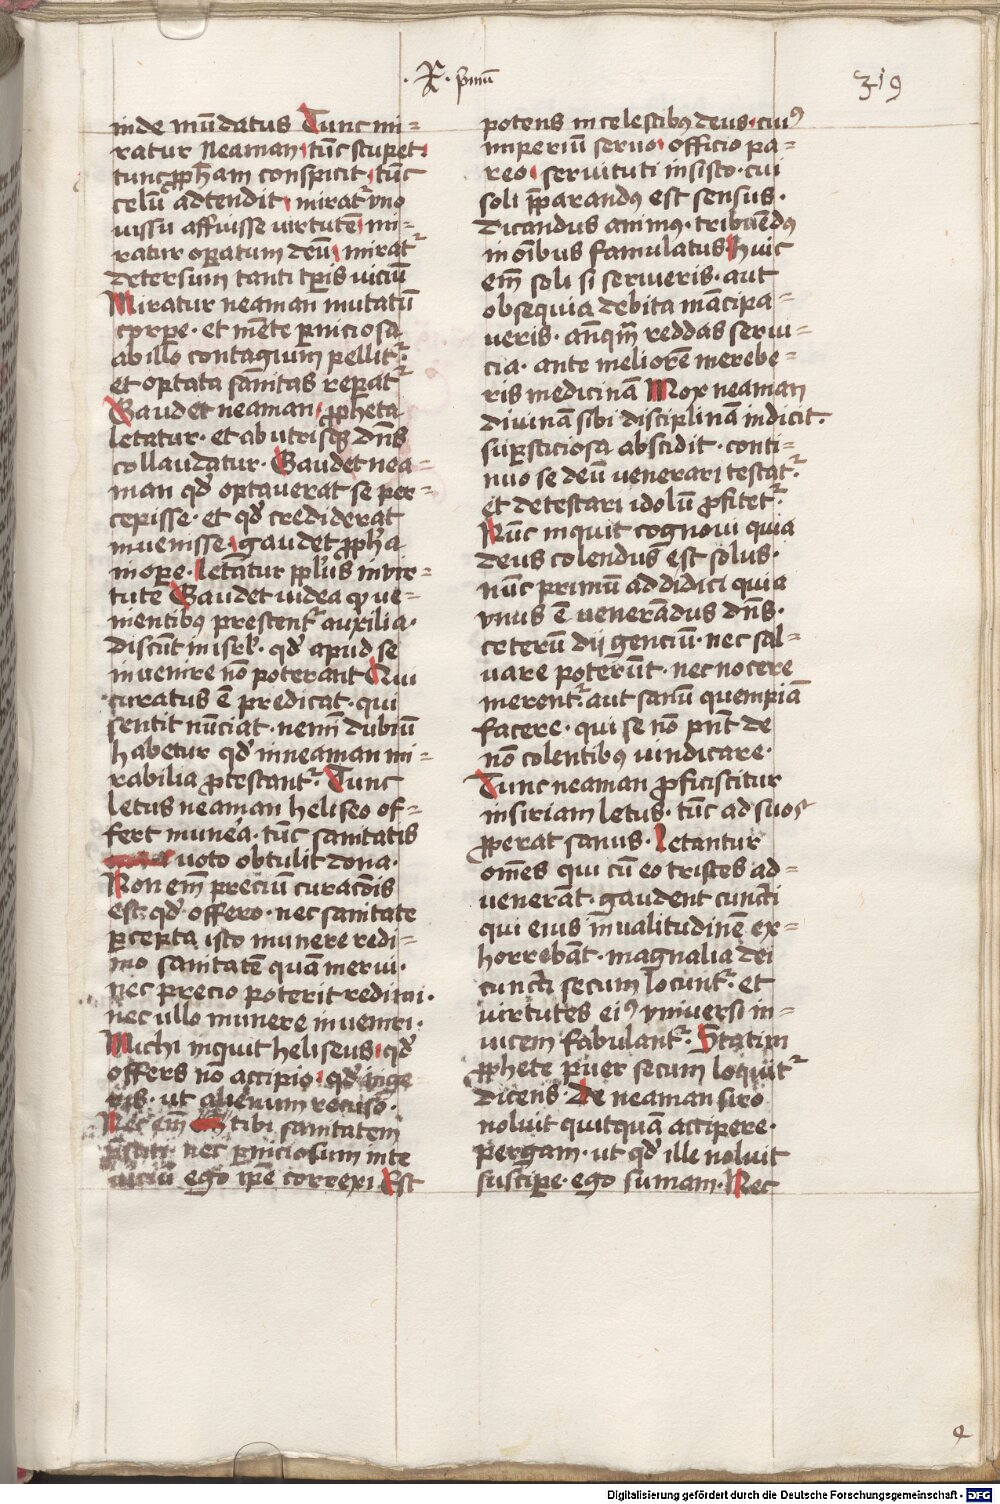 .X. pͥmū
319
inde mūdatus Tunc mi=
ratur Neaman tūc stupet
tunc ꝓph̄am conspicit tūc
celū adtendit miratᷣ vno
uissu affuisse virtutē mi=
ratur oꝑatum deū miratᷣ
detersum tanti tꝑis viciū
Miratur neaman mutatū
corpe · et mēte ꝑniciosa
ab illo contagium pellitᷣ ·
et optata sanitas reꝑatᷣ
Gaudet neaman ꝓpheta
letatur · et ab utrisqꝫ dn̄s
collaudatur · Gaudet nea=
man qd̛ optauerat se per=
cepisse · et qd̛ crediderat
inuenisse gaudet ꝓph̄a
in oꝑe · letātur ppl̄us in vir=
tute Gaudet iudea ꝙ ue=
nientibꝯ prestentᷣ auxilia ·
discūt in isrl̄ · qd̛ apud se
inuenire nō poterant Qui
curatus ē predicat · qui
sentit nūciat · nemī dubiū
habetur qd̛ in neaman mi=
rabilia ꝓtestantᷣ · Tunc
letus neaman heliseo of=
fert munera · tūc sanitatis
uoto obtulit dona ·
Non em̄ preciū curacōis
est qd̛ offero · nec sanitate
ꝑcepta isto munere redi=
mo sanitatē quam merui ·
nec precio poterit redimi ·
nec ullo munere inueniri ·
Michi inquit heliseus qd̛
offers nō accipio · qd̛ inge=
ris · ut alienum recuso ·
Nec em̄ tibi sanitatem
nec ꝑniciosum in te
uiciū ego ip̄e correxi Est
potens in celestibꝯ deus · cuiꝯ
imperiū seruo · officio pa=
reo · seruituti insisto · cui
soli p̄parandus est sensus ·
dicandus animꝯ · tribuēdꝯ
in oībus famulatus · Huic
em̄ soli si serueris · aut
obsequia debita mācipa=
ueris · anq̄m reddas serui=
cia · ante meliorē merebe=
ris medicinā Mox neaman
diuinā sibi disciplinā indicit ·
suꝑsticiosa abscidit · conti=
nuo se deū venerari testatᷣ ·
et detestari idolū ꝓfitetᷣ
Nūc inquit cognoui quia
deus colendus est solus ·
nūc primū addidici quia
vnus ē venerādus dn̄s ·
ceterū dij genciū · nec sal=
uare poterūt · nec nocere
merentᷣ aut sanū quempiā
facere · qui se nō pn̄t de
nō colentibꝯ vindicare ·
Tunc neaman ꝓficiscitur
in siriam letus · tūc ad suos
ꝓperat sanus · Letantur
om̄es qui cū eo tristes ad=
uenerāt · gaudent cuncti
qui eius īnualitudinē ex=
horrebāt · magnalia dei
cuncti secum locuntᷣ · et
virtutes eiꝯ vniuersi in=
uicem fabulantᷣ · Statim
ꝓphete puer secum loquitᷣ
dicens · De neaman siro
noluit quitquā accipere ·
pergam · ut qd̛ ille noluit
suscipe · ego sumam · Nec
Digitalisierung gefördert durch die Deutsche Forschungsgemeinschaft · DFG